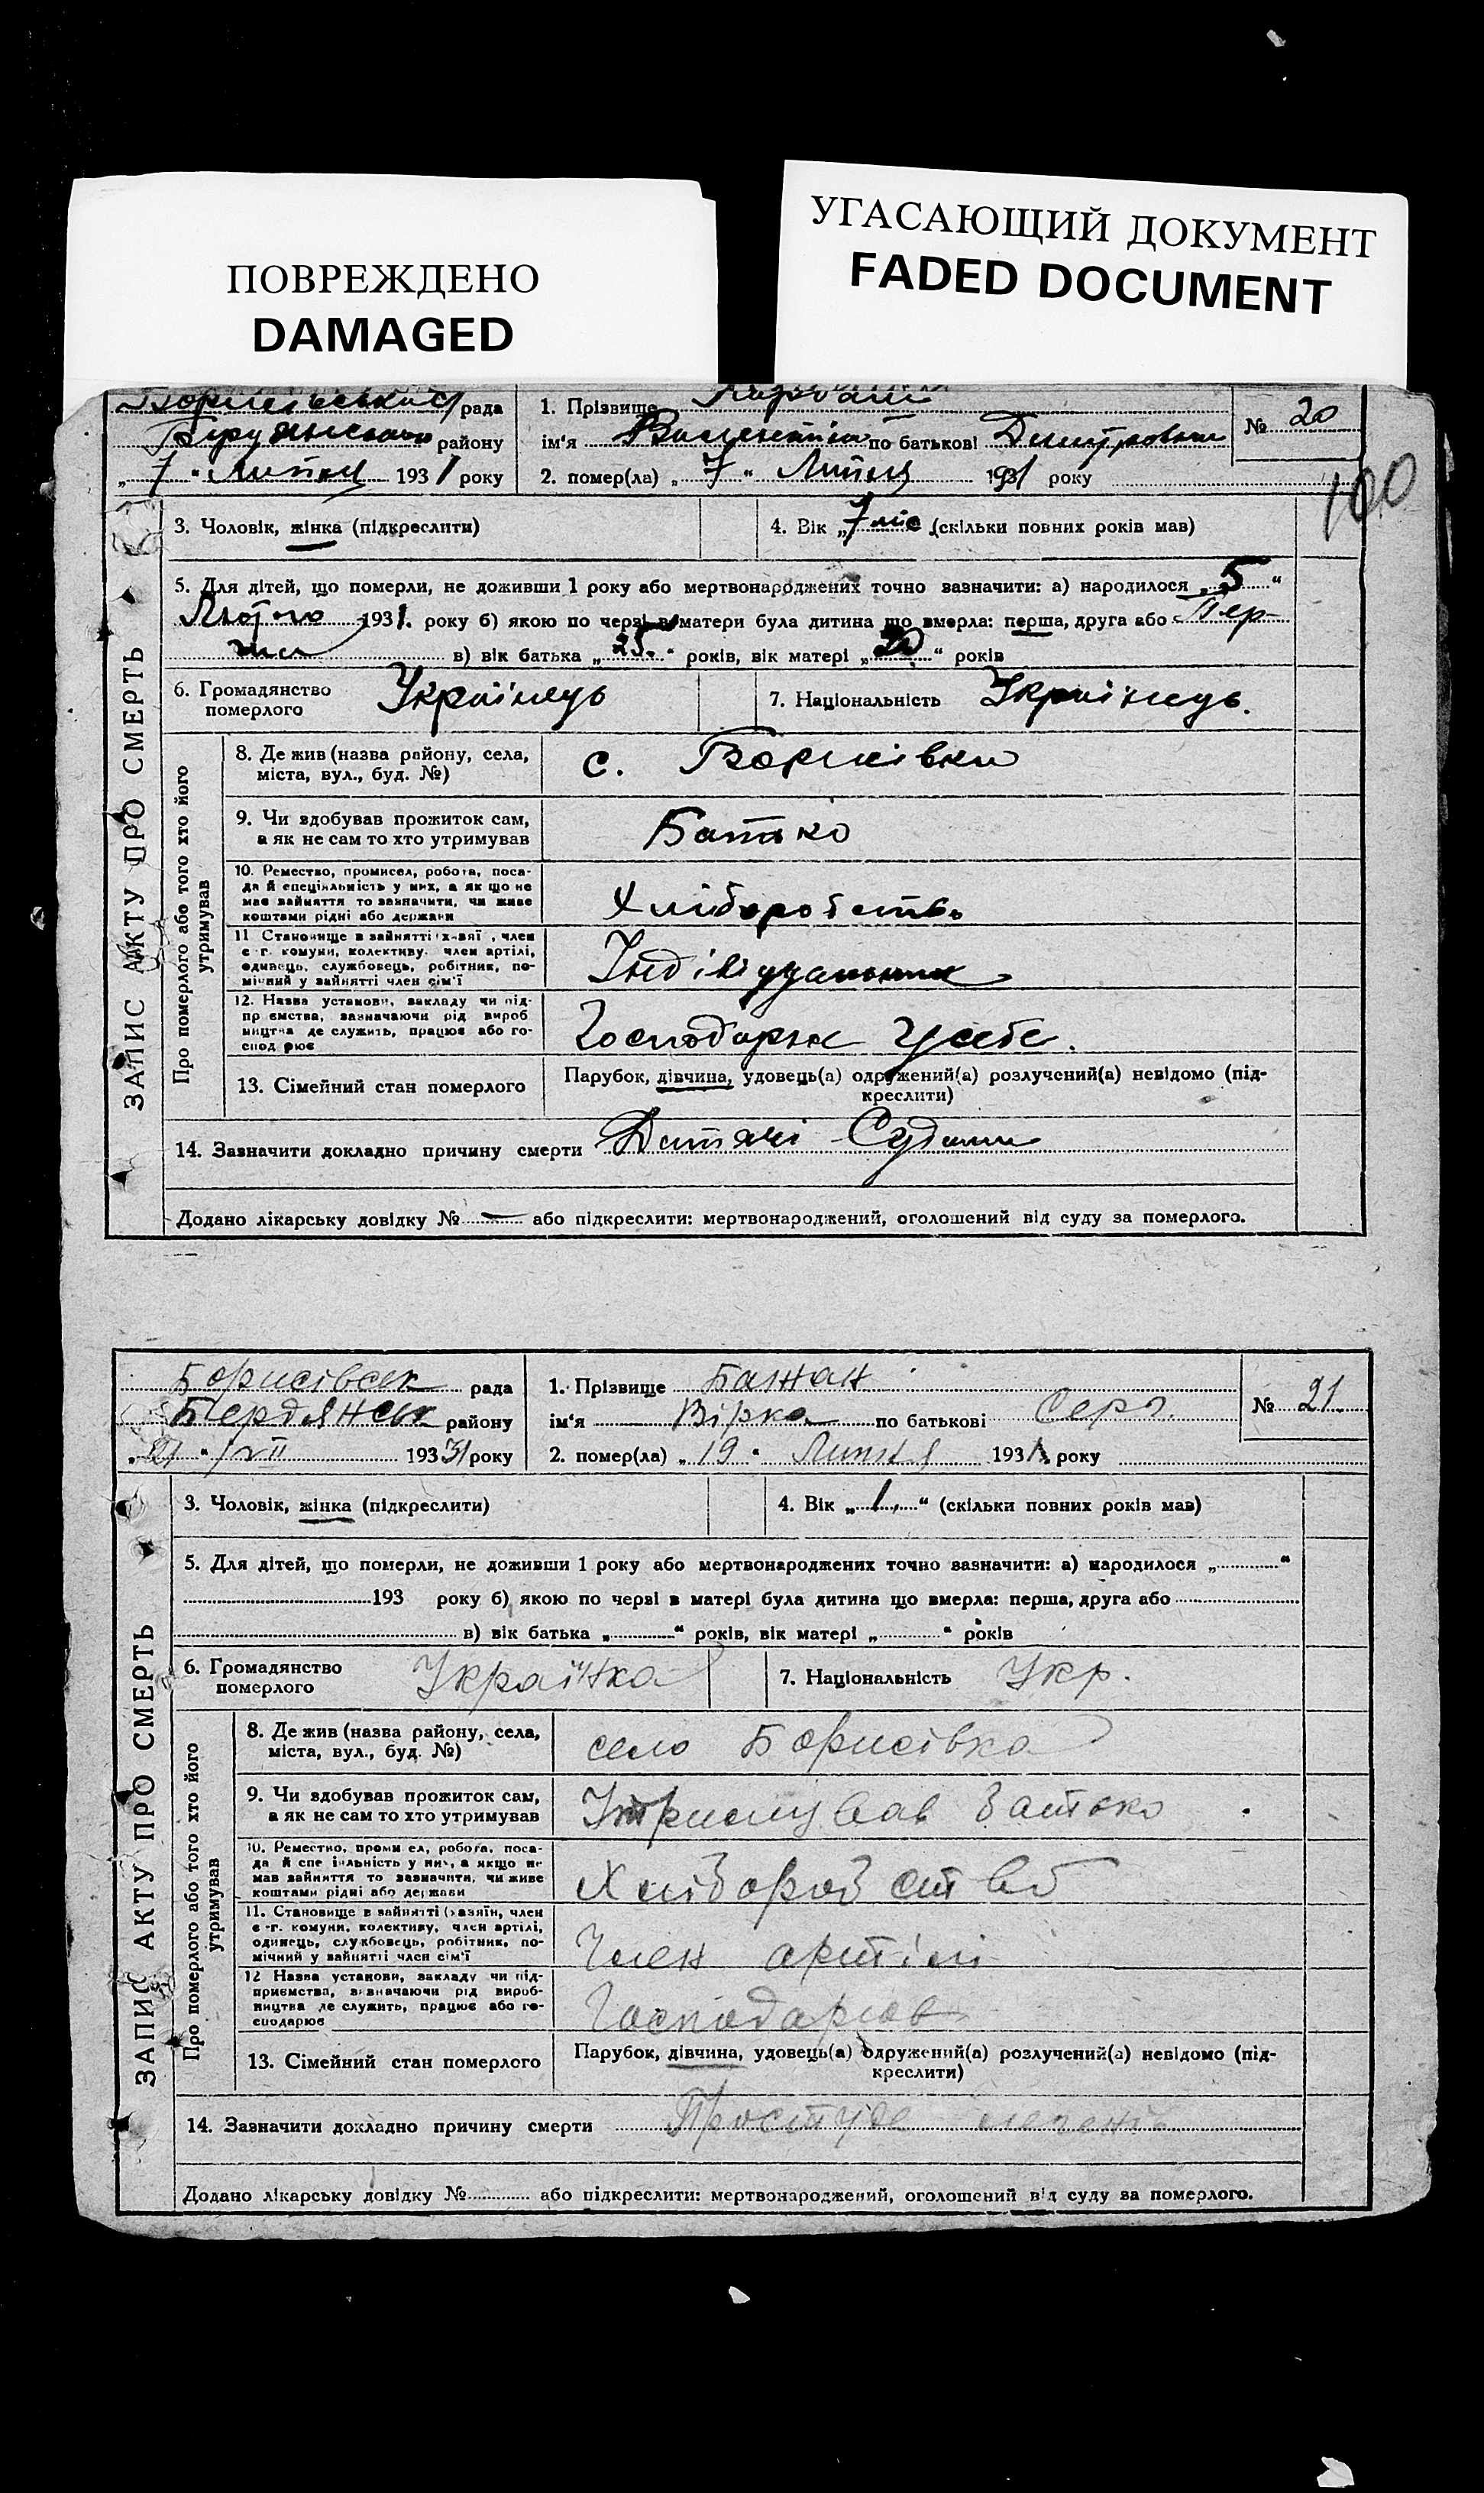 ПОВРЕЖДЕНО
DAMAGED
УГАСАЮЩИЙ ДОКУМЕНТ
FADED DOCUMENT
рада
1. Прізвище
№ 20
району
ім'я Валентіна по батькові Дмитровна
„ 7 " Липня 1931 року
2. помер(ла) „ 7 " Липня 1931 року
100
3. Чоловік, жінка (підкреслити)
4. Вік „ 7 міс (скільки повних років мав)
5. Для дітей, що померли, не доживши 1 року або мертвонароджених точно зазначити: а) народилося „ 5 "
Лютого 1931. року б) якою по черзі в матери була дитина що вмерла: перша, друга або Пер-
ша в) вік батька „ 25 " років, вік матері „ 20 " років
6. Громадянство
померлого
Українець
7. Національність Українець.
ЗАПИС АКТУ ПРО СМЕРТЬ
Про померлого або того хто його
утримував
8. Де жив (назва району, села,
міста, вул., буд. №)
с. Борисівка
9. Чи здобував прожиток сам,
а як не сам то хто утримував
Батько
10. Ремество, промисел, робота, поса-
да й спеціяльність у них, а як що не
має зайняття то зазначити, чи живе
коштами рідні або держави
Хліборобство
11 Становище в зайнятті (хазяї , член
с -г. комуни, колективу, член артілі,
одинець, службовець, робітник, по-
мічний у зайнятті член сім'ї
Індівідуальник
12. Назва установи, закладу чи під-
приємства, зазначаючи рід вироб
ництва де служить, працює або го-
спод рює
Господарює у себе.
13. Сімейний стан померлого
Парубок, дівчина, удовець(а) одружений(а) розлучений(а) невідомо (під-
креслити)
14. Зазначити докладно причину смерти Дитячі
Додано лікарську довідку № — або підкреслити: мертвонароджений, оголошений від суду за померлого.
Борисівськ рада
1. Прізвище Бажан
№ 21.
Бердянськ району
ім'я Вірка по батькові Серг.
„ 21 " VII 1931 року
2. помер(ла) „ 19 " Липня 1931. року
3. Чоловік, жінка (підкреслити)
4. Вік „ 1. " (скільки повних років мав)
5. Для дітей, що померли, не доживши 1 року або мертвонароджених точно зазначити: а) народилося „ "
193 року б) якою по черзі в матері була дитина що вмерла: перша, друга або
в) вік батька „ " років, вік матері „ " років
6. Громадянство
померлого
Українка
7. Національність Укр.
ЗАПИС АКТУ ПРО СМЕРТЬ
Про померлого або того хто його
утримував
8. Де жив (назва району, села,
міста, вул., буд. №)
село Борисівка
9. Чи здобував прожиток сам,
а як не сам то хто утримував
Утримував батько
10. Ремество, промисел, робота, поса-
да й спе іяльність у них, а якщо не
мав зайняття то зазначити, чи живе
коштами рідні або держави
Хліборобство
11. Становище в зайнятті (хазяїн, член
с -г. комуни, колективу, член артілі,
одинець, службовець, робітник, по-
мічний у зайнятті член сім'ї
Член артілі
12 Назва установи, закладу чи під-
приємства, зазначаючи рід вироб-
ництва де служить, працює або го-
сподарює
Господарюв
13. Сімейний стан померлого
Парубок, дівчина, удовець(а) одружений(а) розлучений(а) невідомо (під-
креслити)
14. Зазначити докладно причину смерти Простуда легенів
Додано лікарську довідку № або підкреслити: мертвонароджений, оголошений від суду за померлого.